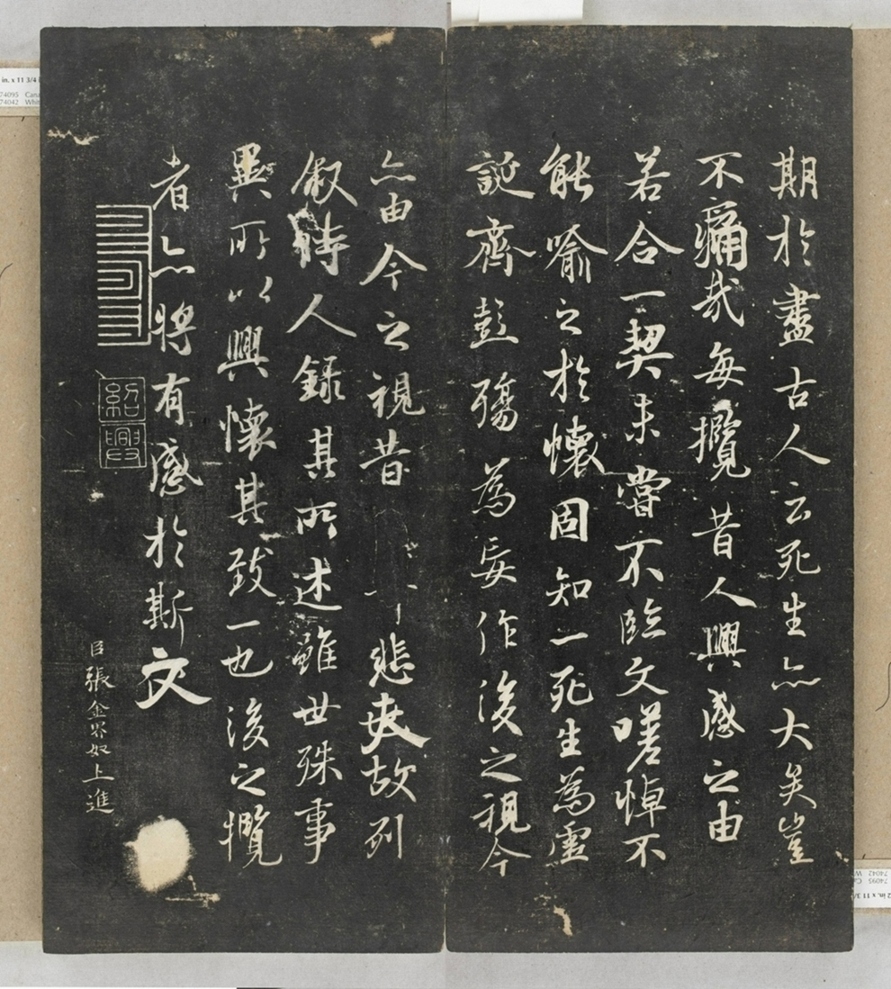 期於盡古人云死生亦大矣豈
不痛哉每攬昔人興感之由
若合一契未嘗不臨文嗟悼不
能喻之於懷固知一死生為虛
誕齊彭殤為妄作後之視今
亦由今之視昔悲夫故列
敘時人錄其所述雖世殊事
異所以興懷其致一也後之攬
者亦將有感於斯文
紹興
臣張金界奴上進
in. x 11 3/4
74095
74042
in. x 11 3/
74095
74042